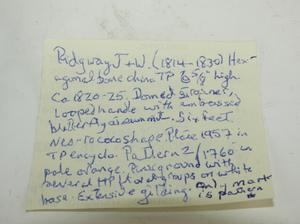 Ridgway J+W. (1814-1830) Hex-
agonal bone china TP 6 5/8" high
Ca 1820-25. Domed strainer,
Looped handle with embossed
butterfly at summit. Six feet
Neo-rococo shape. Plate 1957 in
TP encyclo. Pattern 2/1760 in
pale orange. Pure ground with
several HP bird groups on white
base. Extensive gilding. Only mark
is pattern